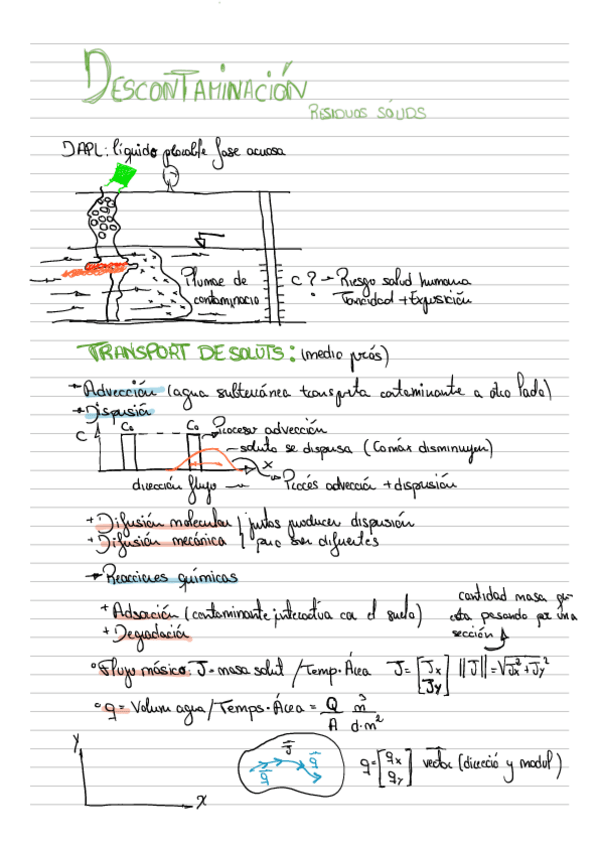 DESCONTAMINACIÓN
RESIDUOS SÓLIDS
líquido fase acuosa
Plumae de
contaminacio
C ? → Riesgo salud humana
Toxicidad + Exposición
TRANSPORT DE SOLUTS: (medio porós)
→ Advección (agua subterránea transporta contaminante a otro lado)
→ Dispersión
C C₀ C₀ Proceso advección
soluto se dispersa (Comáx disminuyen)
x
dirección flujo → Procés advección + dispersión
+ Difusión molecular juntos producen dispersión
+ Difusión mecánica pero son diferentes
→ Reacciones químicas
cantidad masa que
+ Adsorción (contaminante interactua con el suelo) esta pasando por una
+ Degradación sección
° Flujo másico: J = masa solut / Temp · Área J = [Jx Jy] ||J|| = √Jx² + Jy²
° q = Volum agua / Temps · Área = Q/A m³/d·m²
y J q q q = [qx qy] vector (direcció y modul)
x